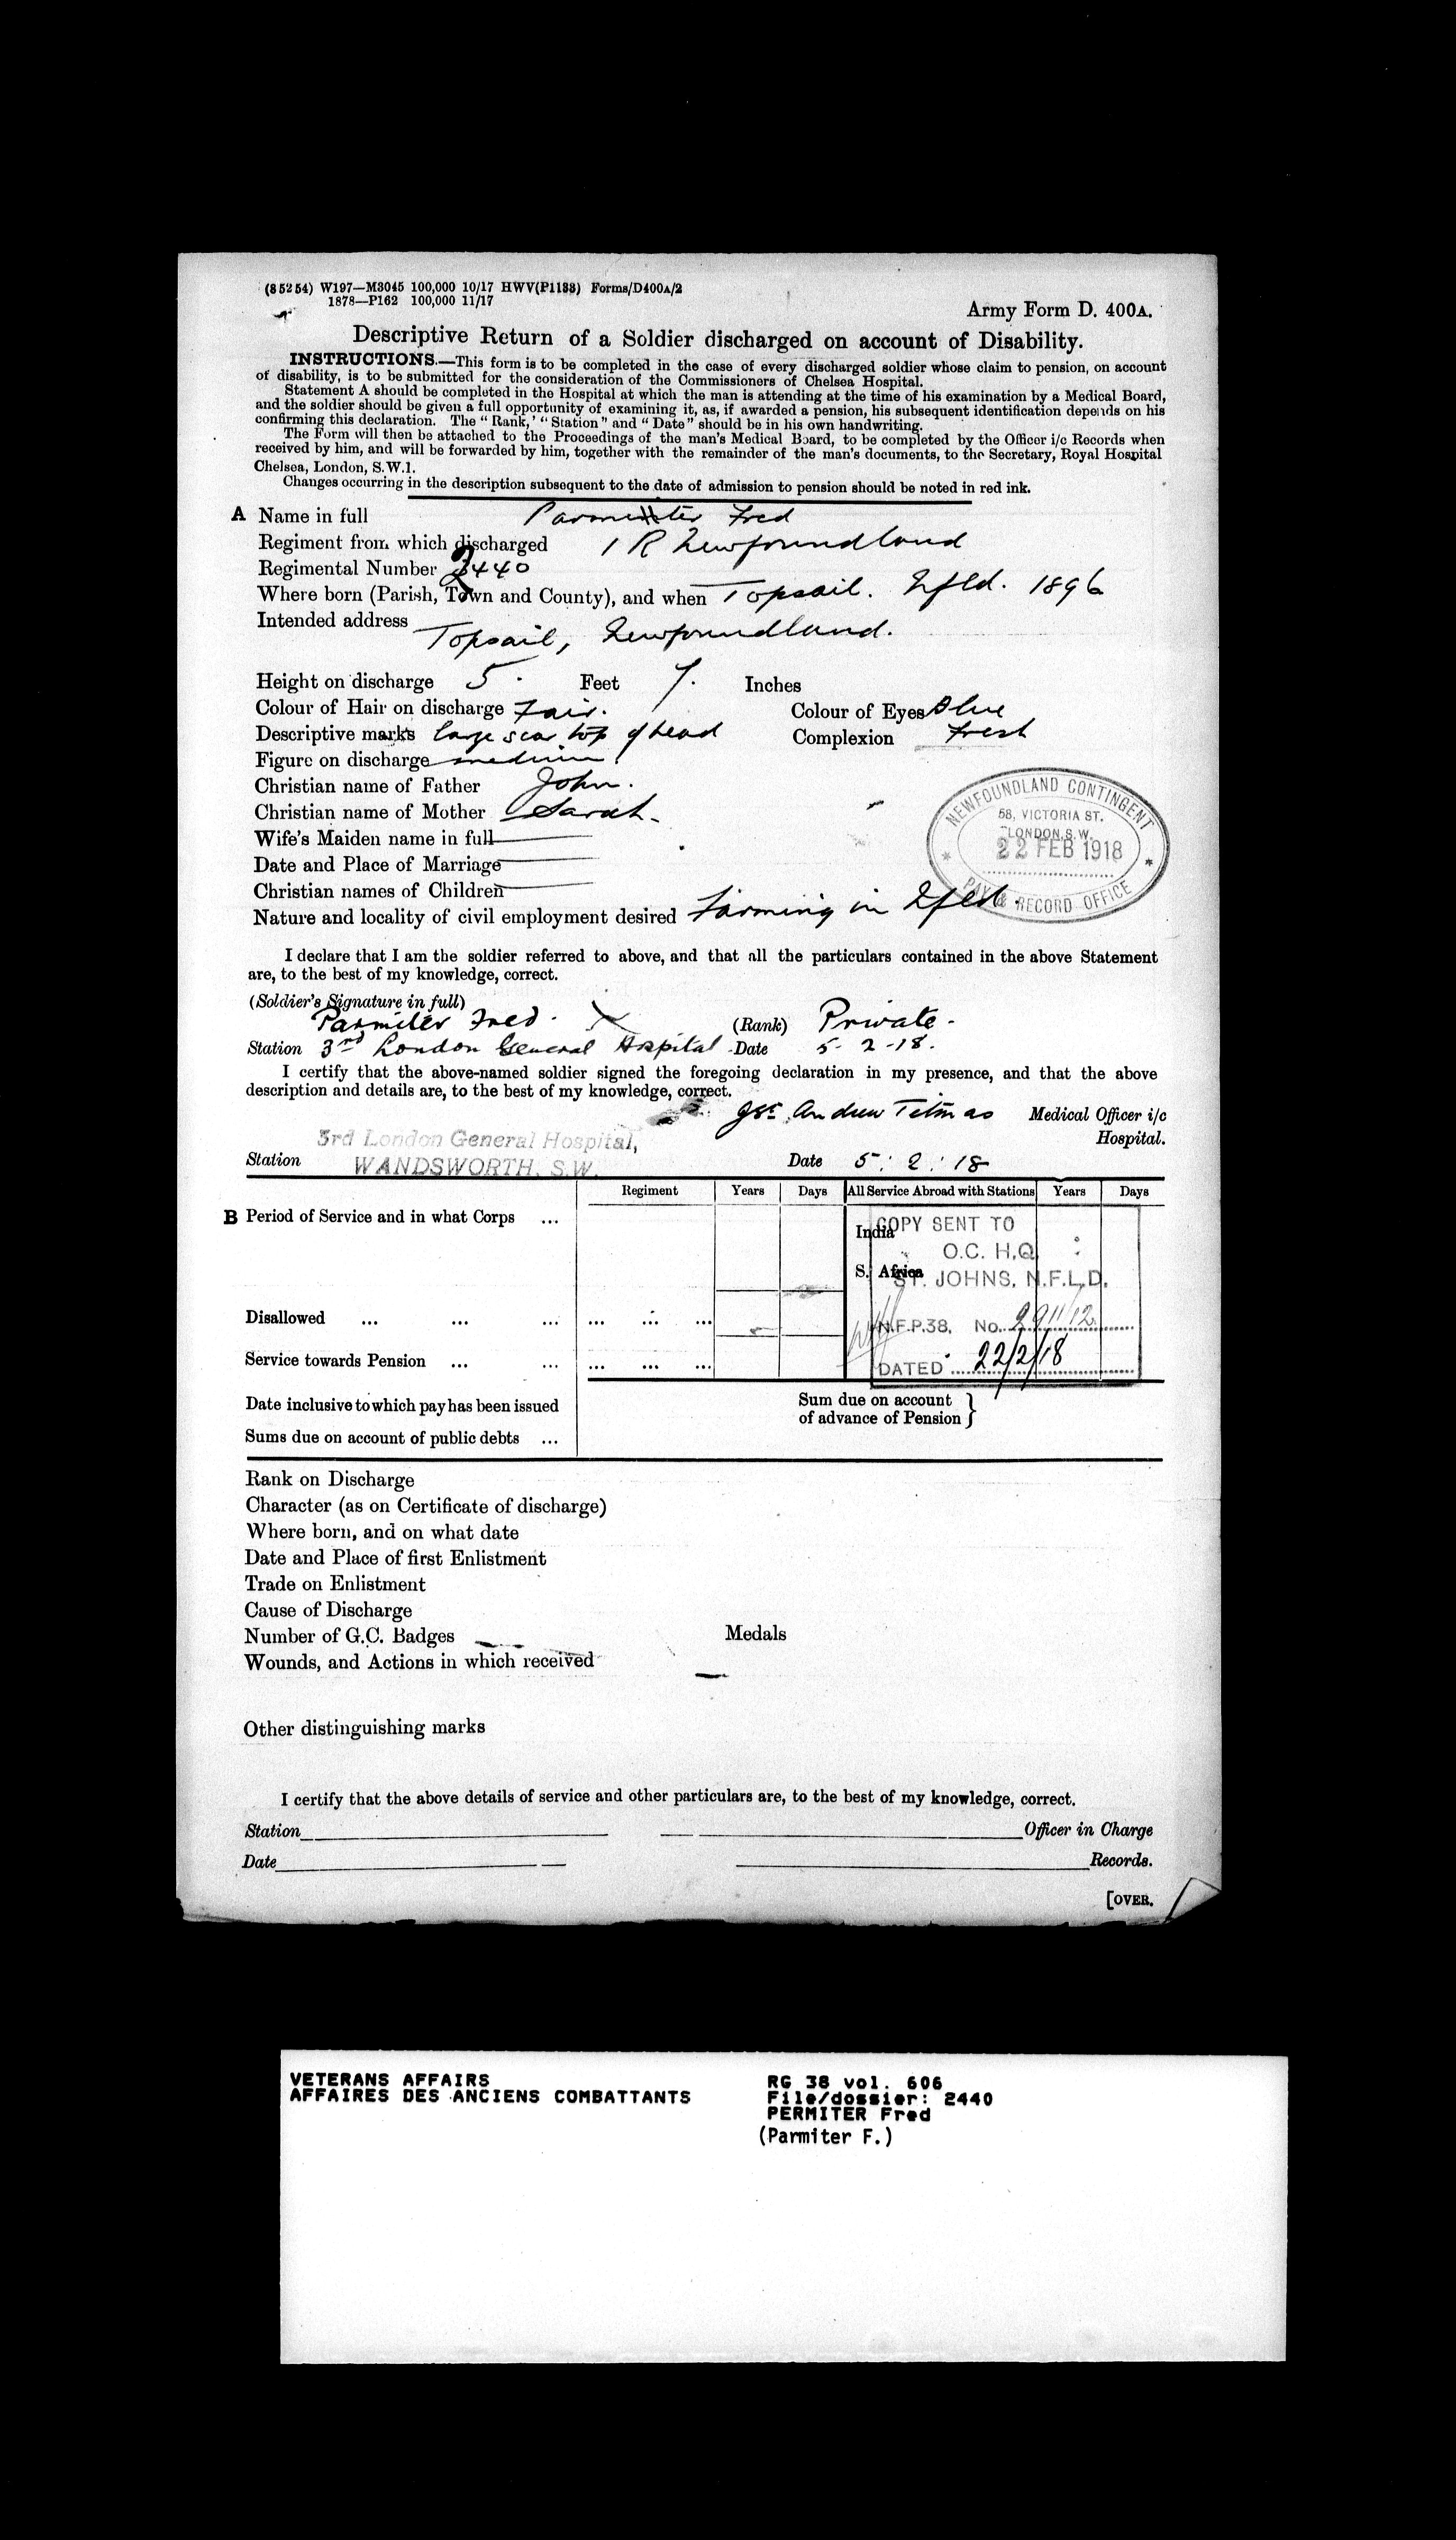 (85254) W197—M3045 100,000 10/17 HWV(P1188) Forms/D400A/2
1878—P162 100,000 11/17
Army Form D. 400A.
Descriptive Return of a Soldier discharged on account of Disability.
INSTRUCTIONS.—This form is to be completed in the case of every discharged soldier whose claim to pension, on account
of disability, is to be submitted for the consideration of the Commissioners of Chelsea Hospital.
Statement A should be completed in the Hospital at which the man is attending at the time of his examination by a Medical Board,
and the soldier should be given a full opportunity of examining it, as, if awarded a pension, his subsequent identification depends on his
confirming this declaration. The "Rank,' "Station" and "Date" should be in his own handwriting.
The Form will then be attached to the Proceedings of the man's Medical Board, to be completed by the Officer i/c Records when
received by him, and will be forwarded by him, together with the remainder of the man's documents, to the Secretary, Royal Hospital
Chelsea, London, S.W.1.
Changes occurring in the description subsequent to the date of admission to pension should be noted in red ink.
A Name in full Fred
Regiment from which discharged 1 R Newfoundland
Regimental Number 2440
Where born (Parish, Town and County), and when Topsail. Nfld. 1896
Intended address Topsail, Newfoundland.
Height on discharge 5. Feet 7. Inches
Colour of Hair on discharge Fair. Colour of Eyes Blue
Descriptive marks large scar top of head Complexion Fresh
Figure on discharge medium
Christian name of Father John.
Christian name of Mother Sarah.
Wife's Maiden name in full
Date and Place of Marriage
Christian names of Children
NEWFOUNDLAND CONTINGENT
58, VICTORIA ST.
LONDON, S.W.
22 FEB 1918
PAY & RECORD OFFICE
Nature and locality of civil employment desired Farming in Nfld.
I declare that I am the soldier referred to above, and that all the particulars contained in the above Statement
are, to the best of my knowledge, correct.
(Soldier's Signature in full)
Parmiter Fred. X (Rank) Private.
Station 3rd London General Hospital Date 5-2-18.
I certify that the above-named soldier signed the foregoing declaration in my presence, and that the above
description and details are, to the best of my knowledge, correct.
Andrew Medical Officer i/c
Hospital.
3rd London General Hospital,
Station WANDSWORTH, S.W. Date 5:2:18
Regiment Years Days All Service Abroad with Stations Years Days
B Period of Service and in what Corps ...
India
S. Africa
COPY SENT TO
O.C. H.Q.
ST. JOHNS, N.F.L.D.
N.F.P.38. No.
DATED 22/2/18
Disallowed ... ... ... ... ... ...
Service towards Pension ... ... ... ... ...
Date inclusive to which pay has been issued
Sum due on account
of advance of Pension }
Sums due on account of public debts ...
Rank on Discharge
Character (as on Certificate of discharge)
Where born, and on what date
Date and Place of first Enlistment
Trade on Enlistment
Cause of Discharge
Number of G.C. Badges Medals
Wounds, and Actions in which received
Other distinguishing marks
I certify that the above details of service and other particulars are, to the best of my knowledge, correct.
Station Officer in Charge
Date Records.
[OVER.
VETERANS AFFAIRS
AFFAIRES DES ANCIENS COMBATTANTS
RG 38 vol. 606
File/dossier: 2440
PERMITER Fred
(Parmiter F.)